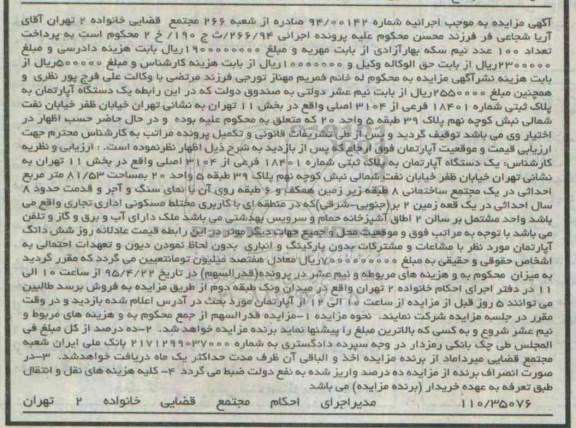 آگهی مزایده به موجب اجرائیه شماره ۹۴/۰۰۱۴۲ صادره از شعبه ۲۶۶ مجتمع قضایی خانواده ۲ تهران آقای
آریا شجاعی فر فرزند محسن محکوم علیه پرونده اجرائی ۲۶۶/۹۴/ث ج ۱۹۰/ خ ۲ محکوم است به پرداخت
تعداد ۱۰۰ عدد نیم سکه بهارآزادی از بابت مهریه و مبلغ ۱۹۰۰۰۰۰۰۰ریال بابت هزینه دادرسی و مبلغ
۲۳۰۰۰۰۰۰ریال از بابت حق الوکاله وکیل و ۱۰۰۰۰۰۰۰ریال از بابت هزینه کارشناس و مبلغ ۵۰۰۰۰۰ریال از
بابت هزینه نشرآگهی مزایده به محکوم له خانم فمریم مهناز تورجی فرزند مرتضی با وکالت علی فرج پور نظری و
همچنین مبلغ ۲۵۵۰۰۰۰ریال از بابت نیم عشر دولتی به صندوق دولت که در این رابطه یک دستگاه آپارتمان به
پلاک ثبتی شماره ۱۸۴۰۱ فرعی از ۳۱۰۴ اصلی واقع در بخش ۱۱ تهران به نشانی تهران خیابان ظفر خیابان نفت
شمالی نبش کوچه نهم پلاک ۳۹ طبقه ۵ واحد ۲۰ که متعلق به محکوم علیه بوده و در حال حاضر حسب اظهار در
اختیار وی می باشد توقیف گردید و پس از طی تشریفات قانونی و تکمیل پرونده مراتب به کارشناس محترم جهت
ارزیابی قیمت و موقعیت آپارتمان فوق ارجاع که پس از بازدید به شرح ذیل اظهار نظرنموده است. : ارزیابی و نظریه
کارشناس: یک دستگاه آپارتمان به پلاک ثبتی شماره ۱۸۴۰۱ فرعی از ۳۱۰۴ اصلی واقع در بخش ۱۱ تهران به
نشانی تهران خیابان ظفر خیابان نفت شمالی نبش کوچه نهم پلاک ۳۹ طبقه ۵ واحد ۲۰ بمساحت ۸۱/۵۳ متر مربع
احداثی در یک مجتمع ساختمانی ۸ طبقه زیر زمین همکف و ۶ طبقه روی آن با نمای سنگ و آجر و قدمت حدود ۸
سال احداثی در یک قعه زمین ۲ بر(جنوبی-شرقی)که در منطقه ای با کاربری مختلط مسکونی اداری تجاری واقع می
باشد واحد مشتمل بر سالن ۲ اطاق آشپزخانه حمام و سرویس بهدشتی می باشد ملک دارای آب و برق و گاز و تلفن
می باشد با توجه به مراتب فوق و موقعیت محل و جمیع جهات دیگر موثر در این رابطه قیمت عادلانه روز شش دانگ
آپارتمان مورد نظر با مشاعات و مشترکات بدون پارکینگ و انباری بدون لحاظ نمودن دیون و تعهدات احتمالی به
اشخاص حقوقی و حقیقی به مبلغ ۷۰۰۰۰۰۰۰۰۰ریال معادل هفتصد میلیون تومانتعیین می گردد که مقرر گردید
به میزان محکوم به و هزینه های مربوطه و نیم عشر در پرونده(قدرالسهم) در تاریخ ۹۵/۴/۲۲ از ساعت ۱۰ الی
۱۱ در دفتر اجرای احکام خانواده ۲ تهران واقع در میدان ونک طبقه دوم از طریق مزایده به فروش برسد طالبین
می توانند ۵ روز قبل از مزایده از ساعت ۱۰ الی ۱۲ از آپارتمان مورد بحث در آدرس اعلام شده بازدید و در وقت
مقرر در جلسه مزایده شرکت نمایند. نحوه مزایده ۱-مزایده قدرالسهم از جمع محکوم به و هزینه های مربوط و
نیم عشر شروع و به کسی که بالاترین مبلغ را پیشنهاد نماید برنده مزایده خواهد شد. ۲-ده درصد از کل مبلغ فی
المجلس طی چک بانکی رمزدار در وجه سپرده دادگستری به شماره ۲۱۷۱۲۹۹۰۳۷۰۰۰ بانک ملی ایران شعبه
مجتمع قضایی میرداماد از برنده مزایده اخذ و الباقی آن ظرف مدت حداکثر یک ماه دریافت خواهدشد. ۳-در
صورت انصراف برنده از مزایده ده درصد واریز شده به نفع دولت ضبط می گردد ۴- کلیه هزینه های نقل و انتقال
طبق تعرفه به عهده خریدار (برنده مزایده) می باشد
۱۱۰/۳۵۰۷۶ مدیراجرای احکام مجتمع قضایی خانواده ۲ تهران